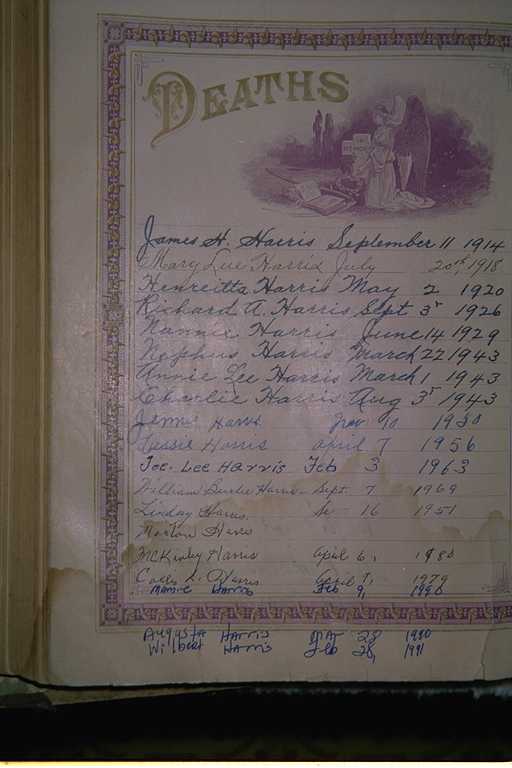 DEATHS
James H. Harris September 11 1914
Mary Lue Harris July 20th, 1918
Henreitta Harris May 2 1920
Richard A. Harris Sept 3r 1926
Nannie Harris June 14 1929
Nephus Harris March 22 1943
Annie Lee Harris March 1 1943
Charlie Harris Aug 3r 1943
Harris 10
Harris April 7 1956
Joe. Lee Harris Feb 3 1963
William Harris Sept. 7 1969
Linday Harris 16 1951
Harris
McKinley Harris April 6, 1980
Harris April 7, 1979
Mamie Harris Feb 9, 1990
Augusta Harris Mar 28 1990
Wilbert Harris Feb 28, 1991